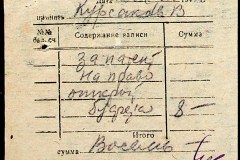 принять Курсаков В
№№ Содержание записи Сумма
За патент
на право
открыт
буфета 8 —
Итого
сумма Восемь